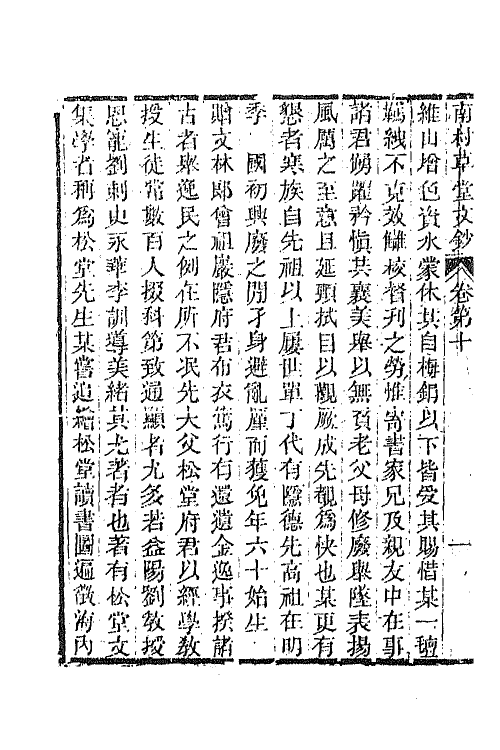 南村草堂文鈔 卷第十 一
維山增色資水蒙休其自梅鋗以下皆受其賜惜某一氊
羈絏不克效讎校督刊之勞惟寄書家兄及親友中在事
諸君踴躍矜愼共襄美舉以無負老父母修廢舉墜表揚
風厲之至意且延頸拭目以觀厥成先覩為快也某更有
懇者寒族自先祖以上屢世單丁代有隱德先高祖在明
季 國初興廢之閒孑身避亂厪而獲免年六十始生
贈文林郎曾祖嚴隱府君布衣篤行有還遺金逸事揆諸
古者舉逸民之例在所不泯先大父松堂府君以經學敎
授生徒常數百人掇科第致通顯者尤多若益陽劉敎授
恩寵劉刺史永 李訓導美緒其尤著者也著有松堂文
集學者稱為松堂先生某嘗追繪松堂讀書圖遍徵海內